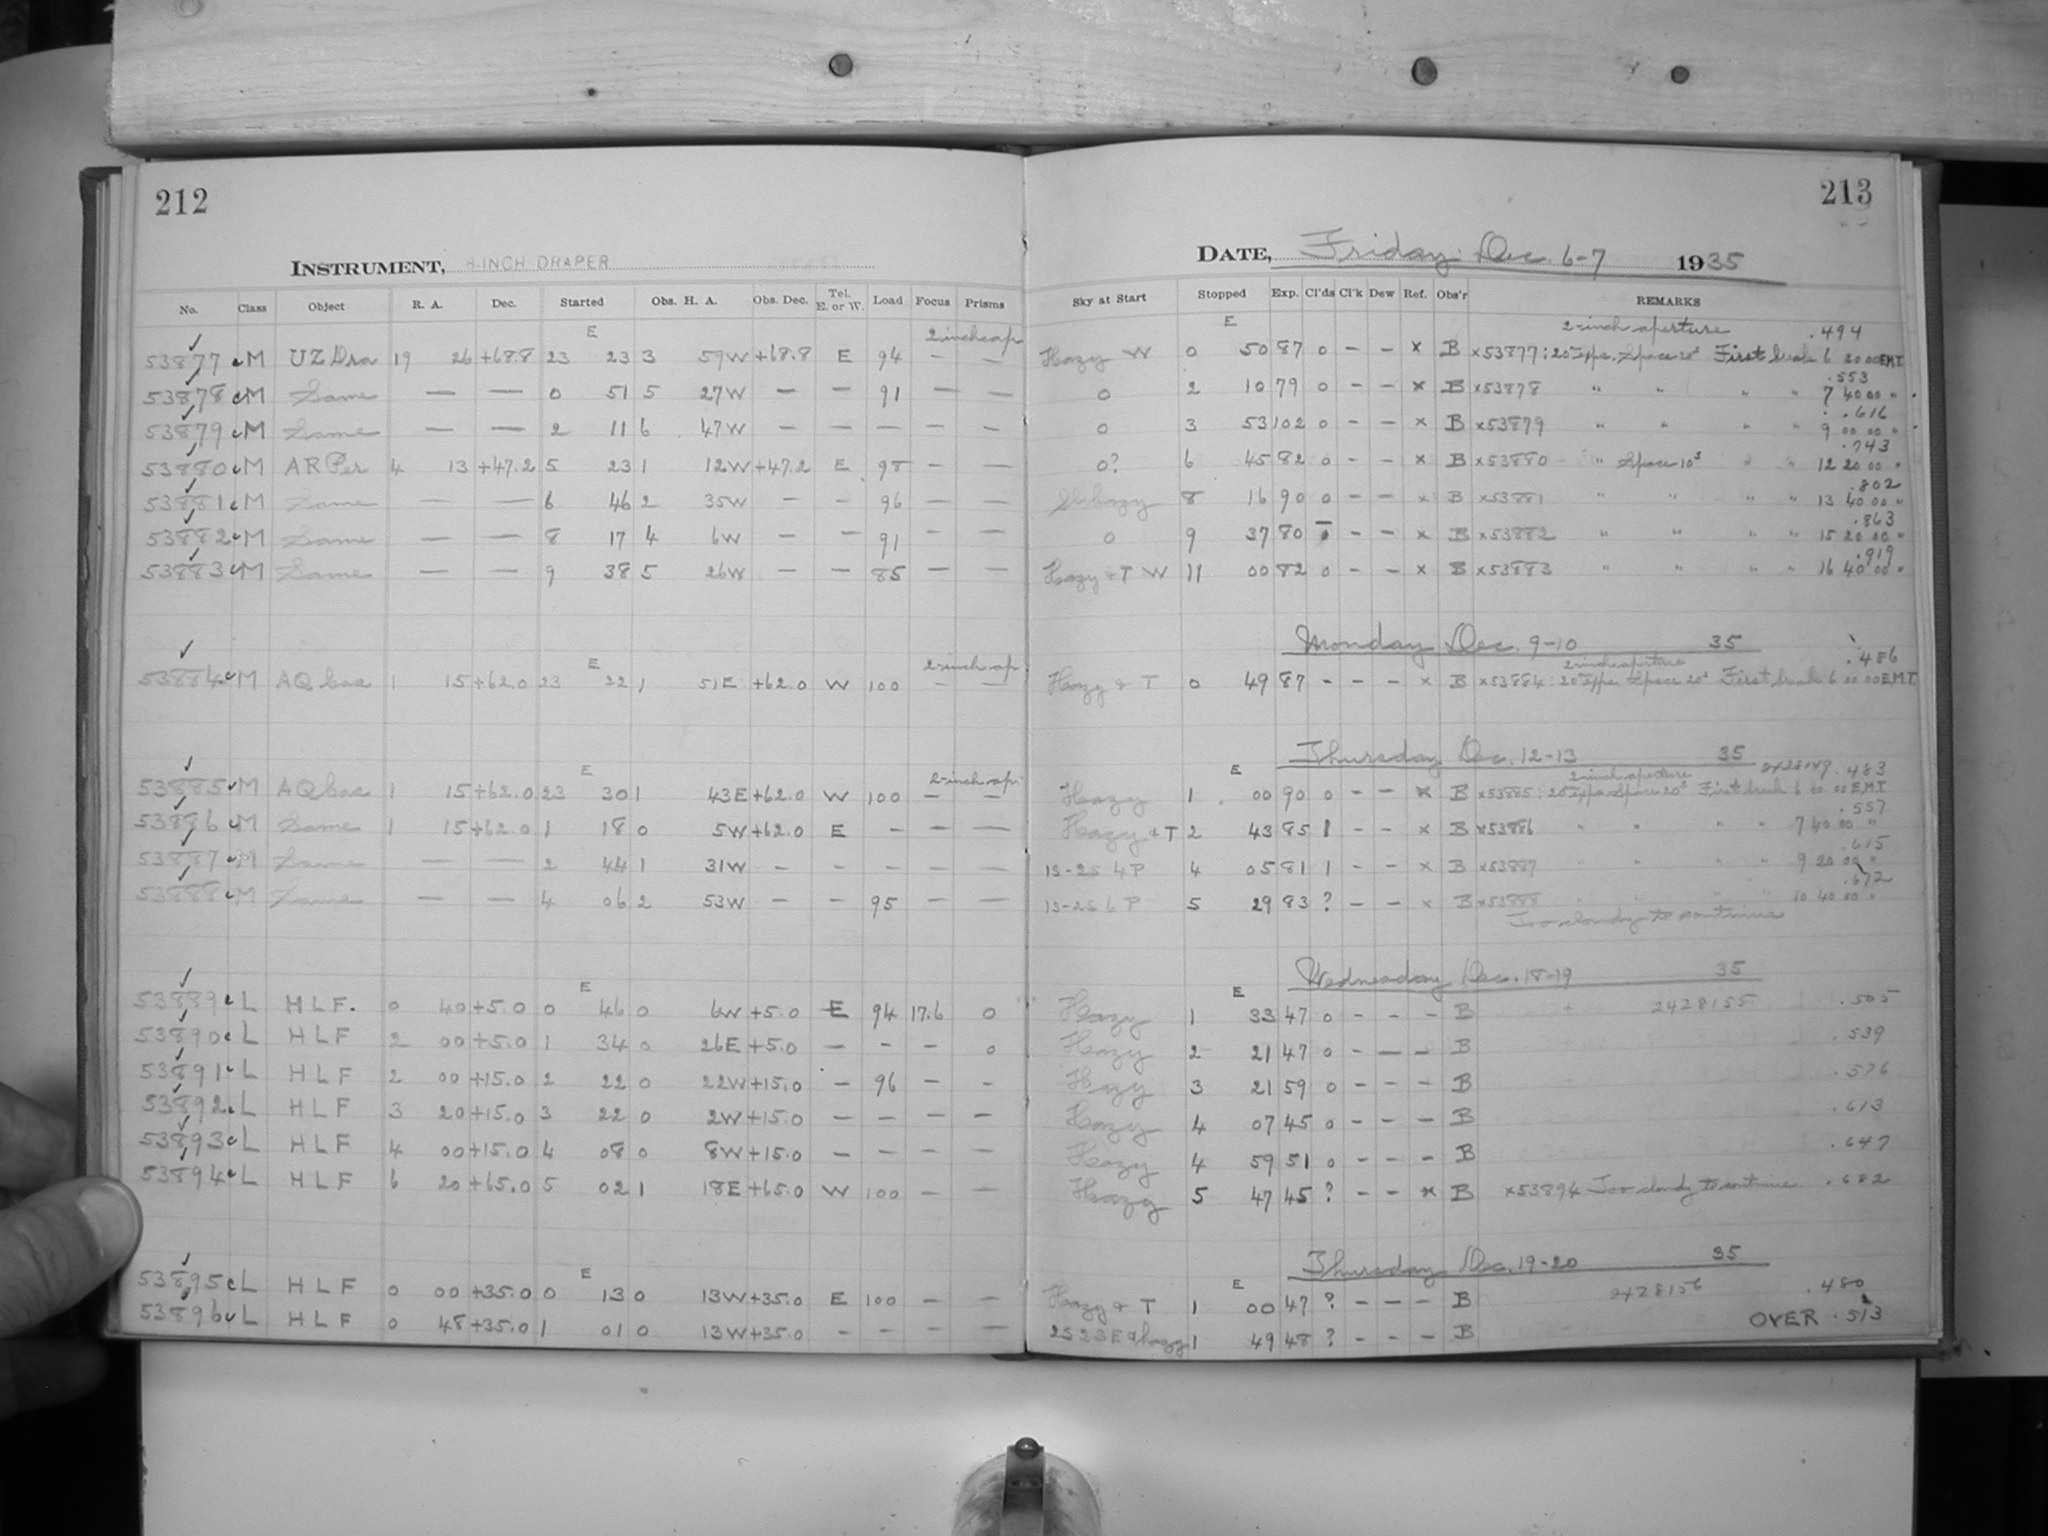 212
INSTRUMENT, 8-INCH DRAPER
No. Class Object R. A. Dec. Started Obs. H. A. Obs. Dec. Tel. E. or W. Load Focus Prisms
E 2-inch ap
53877 M UZ Dra 19 26 +68.8 23 23 3 59W +68.8 E 94 — —
53878 M Same — — 0 51 5 27W — — 91 — —
53879 M Same — — 2 11 6 47W — — — — —
53880 M AR Per 4 13 +47.2 5 23 1 12W +47.2 E 98 — —
53881 M Same — — 6 46 2 35W — — 96 — —
53882 M Same — — 8 17 4 6W — — 91 — —
53883 M Same — — 9 38 5 26W — — 85 — —
E 2-inch ap
53884 M AQ Cas 1 15 +62.0 23 22 1 51E +62.0 W 100 — —
E 2-inch ap.
53885 M AQ Cas 1 15 +62.0 23 30 1 43E +62.0 W 100 — —
53886 M Same 1 15 +62.0 1 18 0 5W +62.0 E — — —
53887 M Same — — 2 44 1 31W — — — — —
53888 M Same — — 4 06 2 53W — — 95 — —
E
53889 L HLF. 0 40 +5.0 0 46 0 6W +5.0 E 94 17.6 0
53890 L HLF 2 00 +5.0 1 34 0 26E +5.0 — — — 0
53891 L HLF 2 00 +15.0 2 22 0 22W +15.0 — 96 — —
53892 L HLF 3 20 +15.0 3 22 0 2W +15.0 — — — —
53893 L HLF 4 00 +15.0 4 08 0 8W +15.0 — — — —
53894 L HLF 6 20 +65.0 5 02 1 18E +65.0 W 100 — —
E
53895 L HLF 0 00 +35.0 0 13 0 13W +35.0 E 100 — —
53896 L HLF 0 48 +35.0 1 01 0 13W +35.0 — — — —
213
DATE, Friday Dec. 6-7 1935
Sky at Start Stopped Exp. Cl'ds Cl'k Dew Ref. Obs'r REMARKS
E 2-inch aperture .494
Hazy W 0 50 87 0 — — x B x53877: 20 Exps. Space 20s First break 6 20 00 E.M.T.
.553
0 2 10 79 0 — — x B x53878 " " " " 7 40 00 "
.616
0 3 53 102 0 — — x B x53879 " " " " 9 00 00 "
.743
0? 6 45 82 0 — — x B x53880 " Space 10s " " 12 20 00 "
.802
Sl hazy 8 16 90 0 — — x B x53881 " " " " 13 40 00 "
.863
0 9 37 80 0 — — x B x53882 " " " " 15 20 00 "
.919
Hazy + T W 11 00 82 0 — — x B x53883 " " " " 16 40 00 "
Monday Dec. 9-10 35
2-inch aperture .486
Hazy & T 0 49 87 — — — x B x53884: 20 Exps. Space 20s First break 6 00 00 E.M.T.
Thursday Dec. 12-13 35
E 2-inch aperture 2428149 .483
Hazy 1 00 90 0 — — x B x53885: 20 Exps Space 20s First break 6 00 00 E.M.T.
.557
Hazy + T 2 43 85 1 — — x B x53886 " " " " 7 40 00 "
.615
1S-2S 4P 4 05 81 1 — — x B x53887 " " " " 9 20 00 "
.672
1S-2S 6P 5 29 83 ? — — x B x53888 " " " " 10 40 00 "
Too cloudy to continue
Wednesday Dec. 18-19 35
E
Hazy 1 33 47 0 — — — B 2428155 .505
Hazy 2 21 47 0 — — — B .539
Hazy 3 21 59 0 — — — B .576
Hazy 4 07 45 0 — — — B .613
Hazy 4 59 51 0 — — — B .647
Hazy 5 47 45 ? — — x B x53894 Too cloudy to continue. .682
Thursday Dec. 19-20 35
E
Hazy & T 1 00 47 ? — — — B 2428156 .480
2S 2SE & hazy 1 49 48 ? — — — B OVER .513